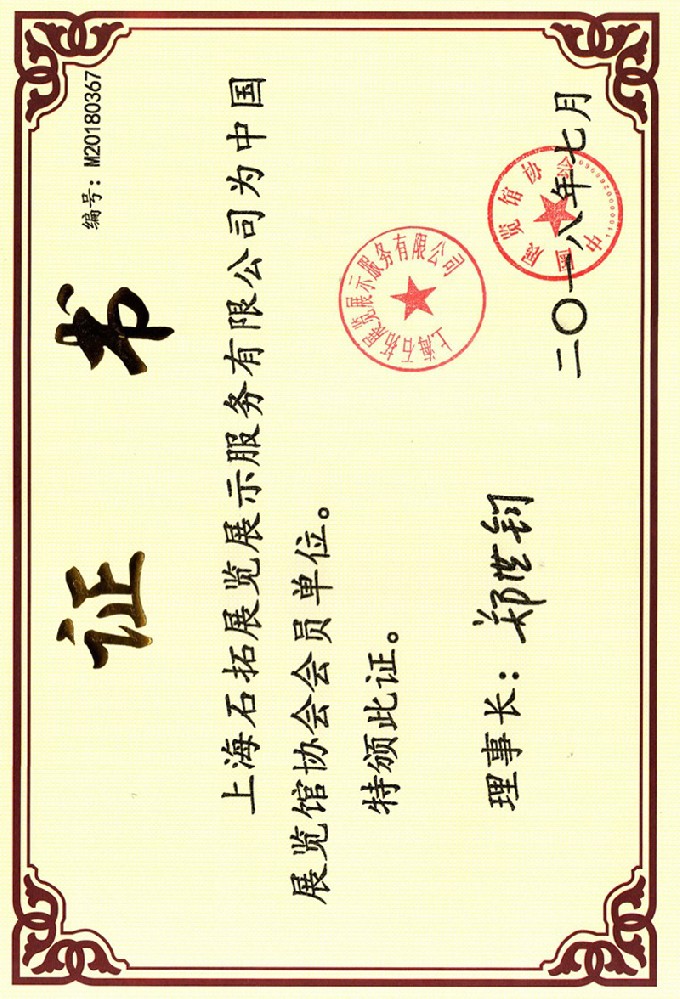 编号：M20180367
证 书
上海石拓展览展示服务有限公司为中国
展览馆协会会员单位。
特颁此证。
上海石拓展览展示服务有限公司
理事长：郑世钧
中国展览馆协会
二〇一八年七月